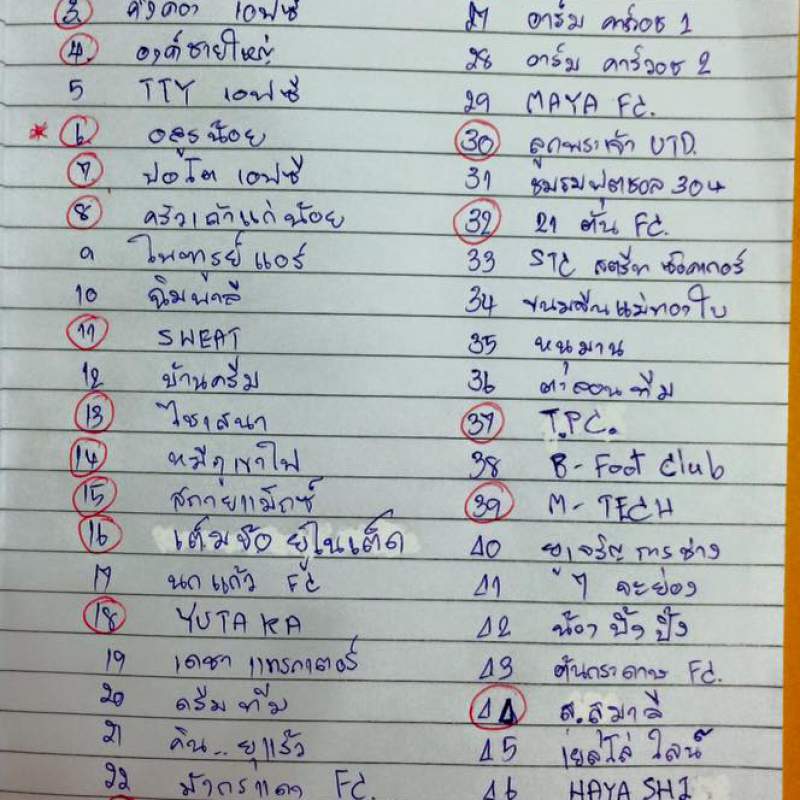 3 คิงคอง เอฟซี
4. องค์ชายใหญ่
5 TTY เอฟซี
* 6 อสูรน้อย
7 ปอโต เอฟซี
8 ครัวเถ้าแก่น้อย
9 ไพฑูรย์แอร์
10 ฉิมพาลี
11 SWEAT
12 บ้านครีม
13 ไชเสนา
14 หมีภูเขาไฟ
15 สกายแม็กซ์
16 เต็มข้อ ยู่ในเต็ด
17 นกแก้ว FC
18 YUTAKA
19 เดชา แทรกเตอร์
20 ดรีมทีม
21 คิน.. ยุแร้ว
22 FC.
27 อาร์ม คาร์วอช 1
28 อาร์ม คาร์วอช 2
29 MAYA FC.
30 ลูกพระเจ้า UTD.
31 ชมรมฟุตซอล 304
32 21 ตัน FC.
33 STC สตรีท
34 ขนมจีนแม่ทองใบ
35 หนุมาน
36 ต่าลอนทีม
37 T.PC.
38 B-Foot Club
39 M-TECH
40 ยูเจริญการช่าง
41 ๆ ละย่อง
42 น้อง ปิ้ง ปิ้ง
43 ต้นกระดาษ FC.
44 ส.สมาลี
45 เยลโล่ ไลน์
46 HAYASHI